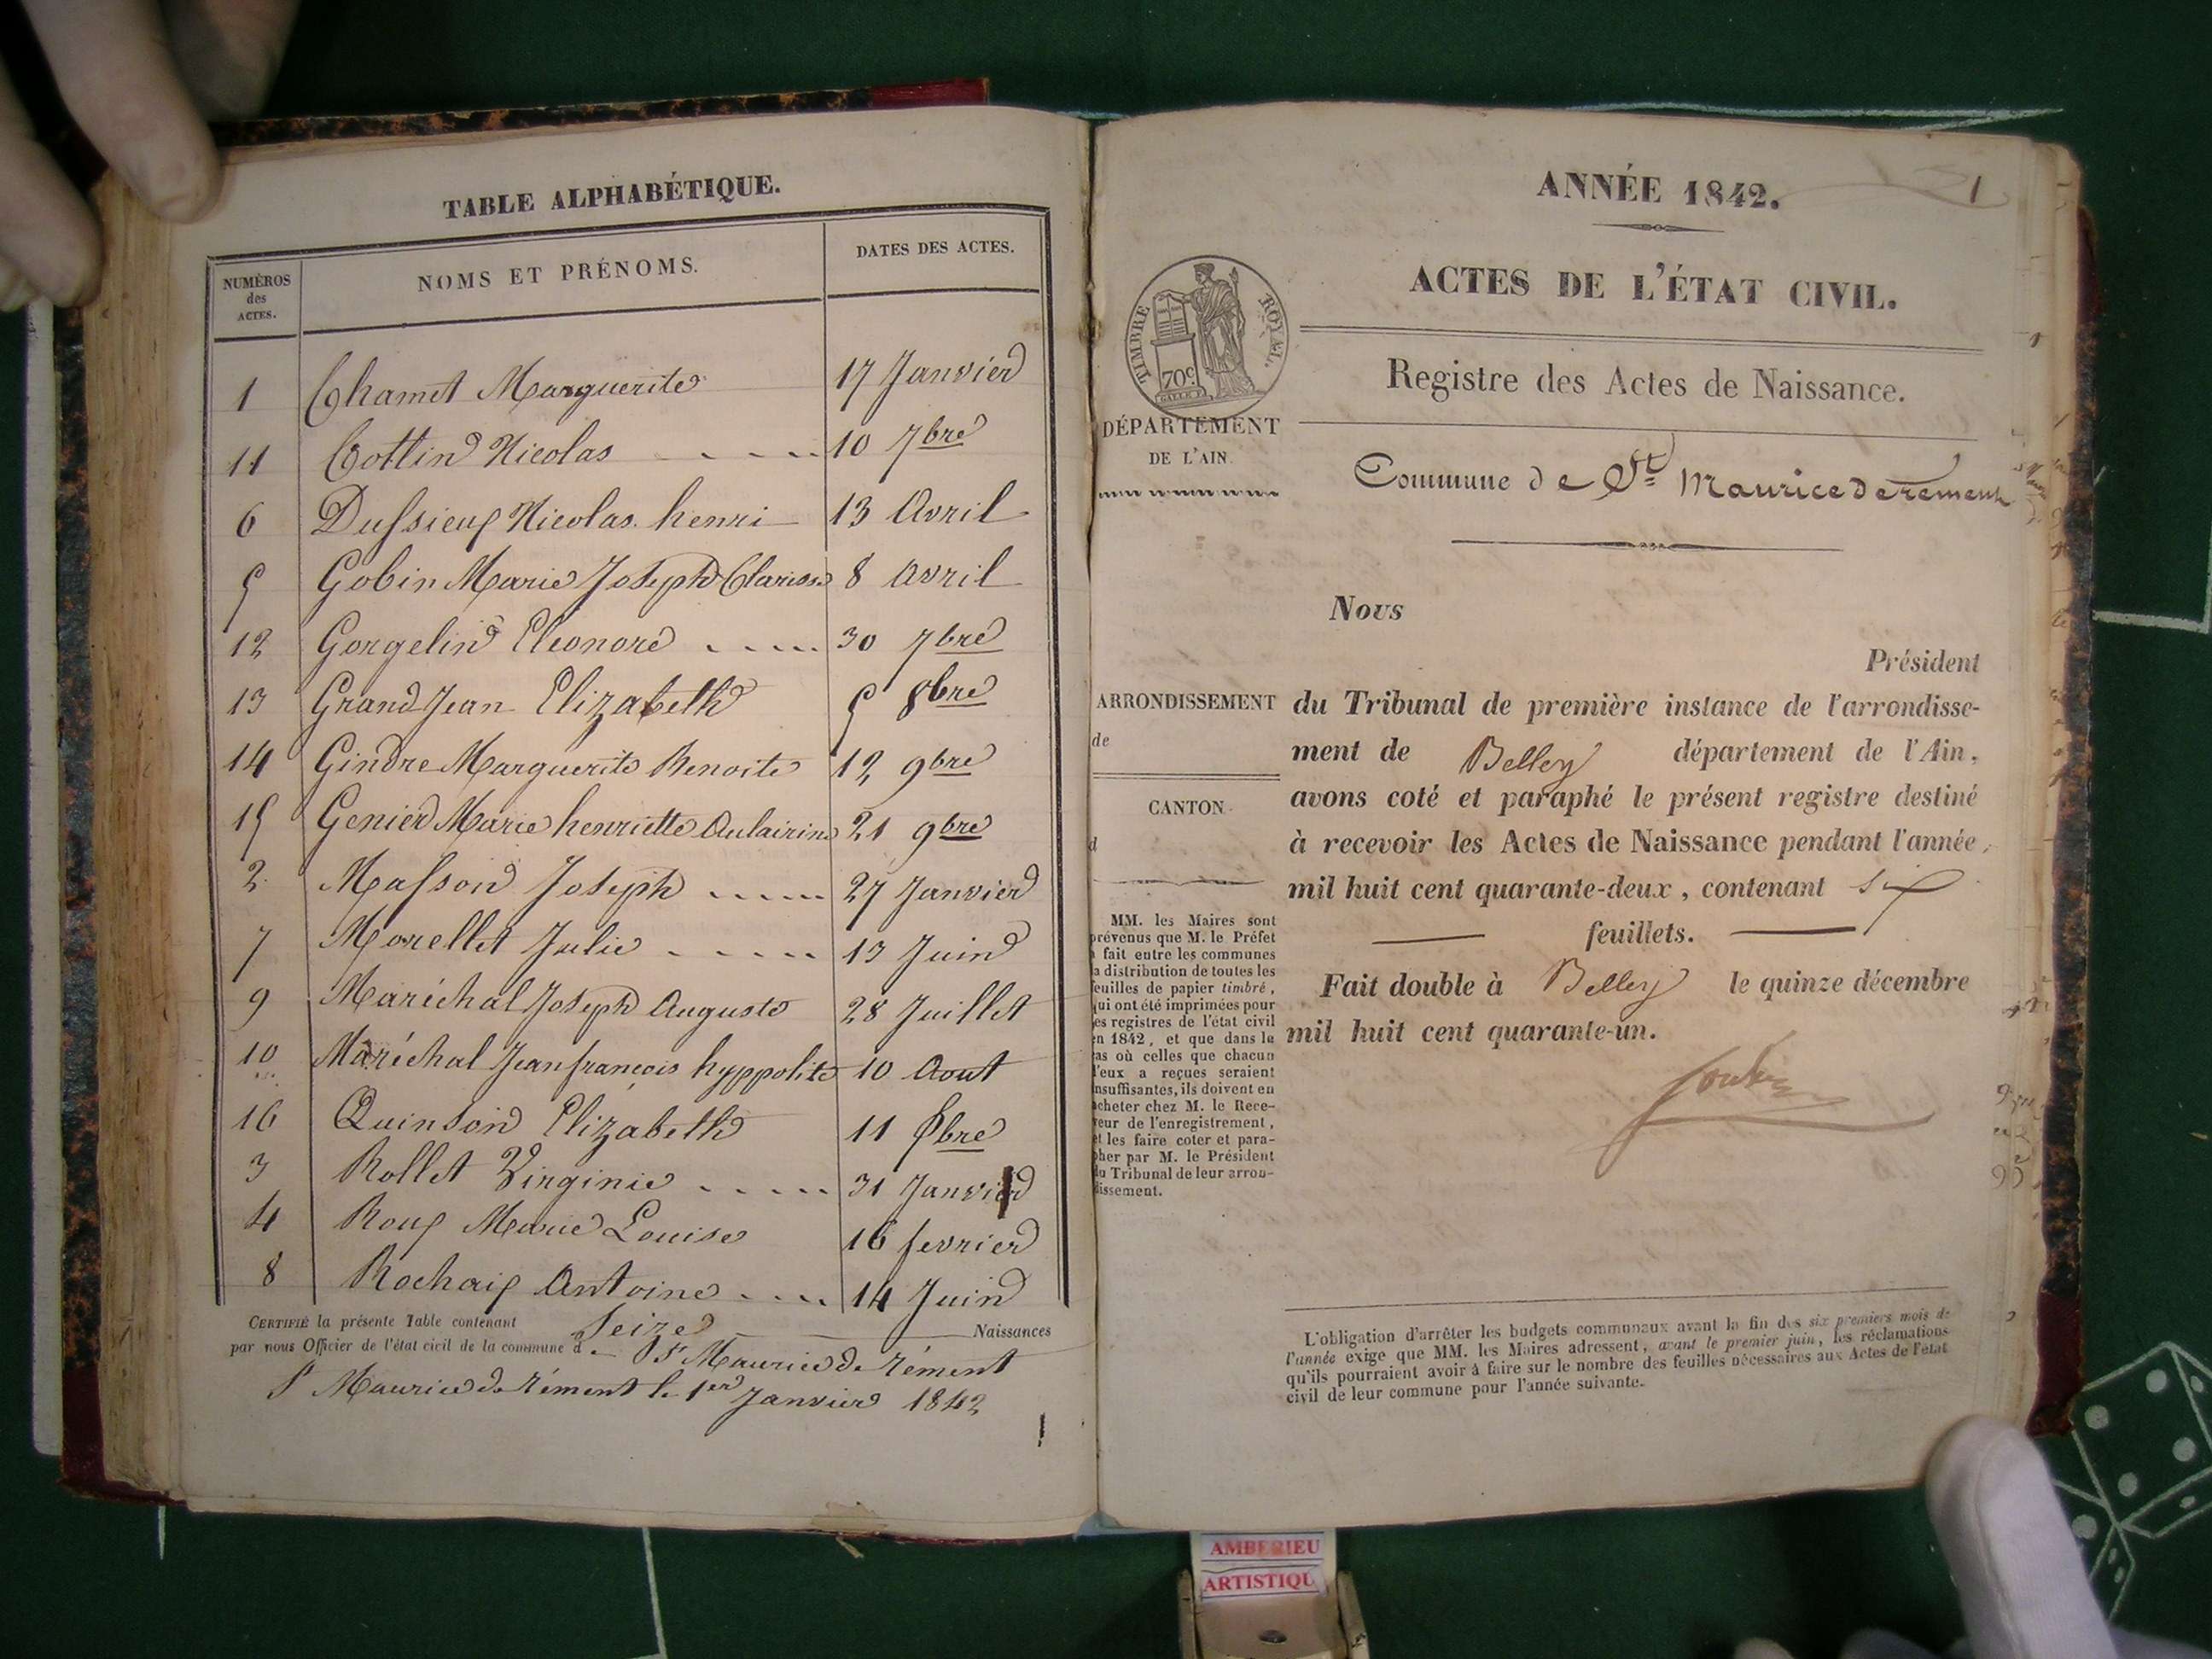 TABLE ALPHABÉTIQUE.
NUMÉROS des ACTES. NOMS ET PRÉNOMS. DATES DES ACTES.
1 Chamet Marguerite 17 Janvier
11 Cottin Nicolas 10 7bre
6 Dussieux Nicolas henri 13 Avril
5 Gobin Marie Joseph Clarisse 8 avril
12 Gorgelin Eleonore 30 7bre
13 Grand Jean Elizabeth 5 8bre
14 Gindre Marguerite Benoite 12 9bre
15 Genier Marie henriette 21 9bre
2 Masson Joseph 27 Janvier
7 Morellet Julie 13 Juin
9 Maréchal Joseph Auguste 28 Juillet
10 Maréchal Jean françois hyppolite 10 Aout
16 Quinson Elizabeth 11 Xbre
3 Rollet Virginie 31 Janvier
4 Roux Marie Louise 16 fevrier
8 Rochaix Antoine 14 Juin
CERTIFIÉ la présente Table contenant Seize Naissances
par nous Officier de l'état civil de la commune de St Maurice de rément
St Maurice de rément le 1er Janvier 1842
ANNÉE 1842.
1
ACTES DE L'ÉTAT CIVIL.
TIMBRE ROYAL.
70c
Registre des Actes de Naissance.
DÉPARTEMENT
DE L'AIN.
Commune de St Maurice de remens
Nous
Président
ARRONDISSEMENT
de
CANTON
d
du Tribunal de première instance de l'arrondisse-
ment de Belley département de l'Ain,
avons coté et paraphé le présent registre destiné
à recevoir les Actes de Naissance pendant l'année
mil huit cent quarante-deux, contenant six
feuillets.
Fait double à Belley le quinze décembre
mil huit cent quarante-un.
MM. les Maires sont
prévenus que M. le Préfet
a fait entre les communes
la distribution de toutes les
feuilles de papier timbré,
qui ont été imprimées pour
les registres de l'état civil
en 1842, et que dans le
cas où celles que chacun
d'eux a reçues seraient
insuffisantes, ils doivent en
acheter chez M. le Rece-
veur de l'enregistrement,
et les faire coter et para-
pher par M. le Président
du Tribunal de leur arron-
dissement.
L'obligation d'arrêter les budgets communaux avant la fin des six premiers mois de
l'année exige que MM. les Maires adressent, avant le premier juin, les réclamations
qu'ils pourraient avoir à faire sur le nombre des feuilles nécessaires aux Actes de l'état
civil de leur commune pour l'année suivante.
AMBERIEU
ARTISTIQU